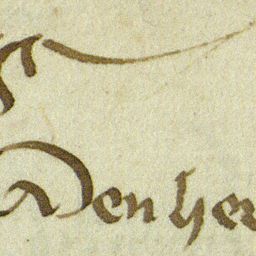 Den her